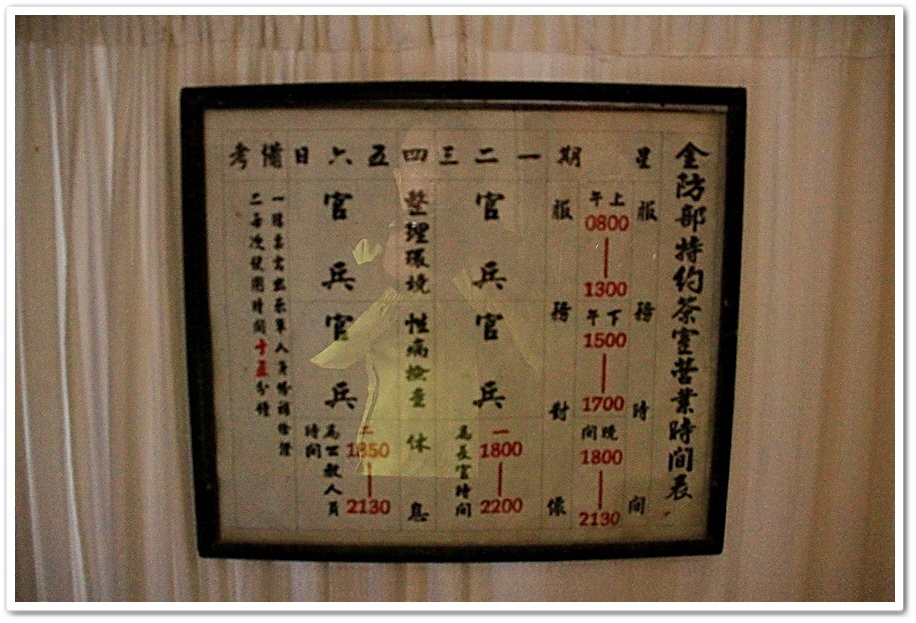 金防部特約茶室營業時間表
星期一二三四五六日備考
服務時間
上午
0800
1300
下午
1500
1700
晚間
1800
2130
服務對像
官兵
官兵
一
1800
2200
為長官時間
整理環境
性病檢查
休息
官兵
官兵
二
1850
2130
為世教人員
時間
一
二每次使用時間十五分鐘